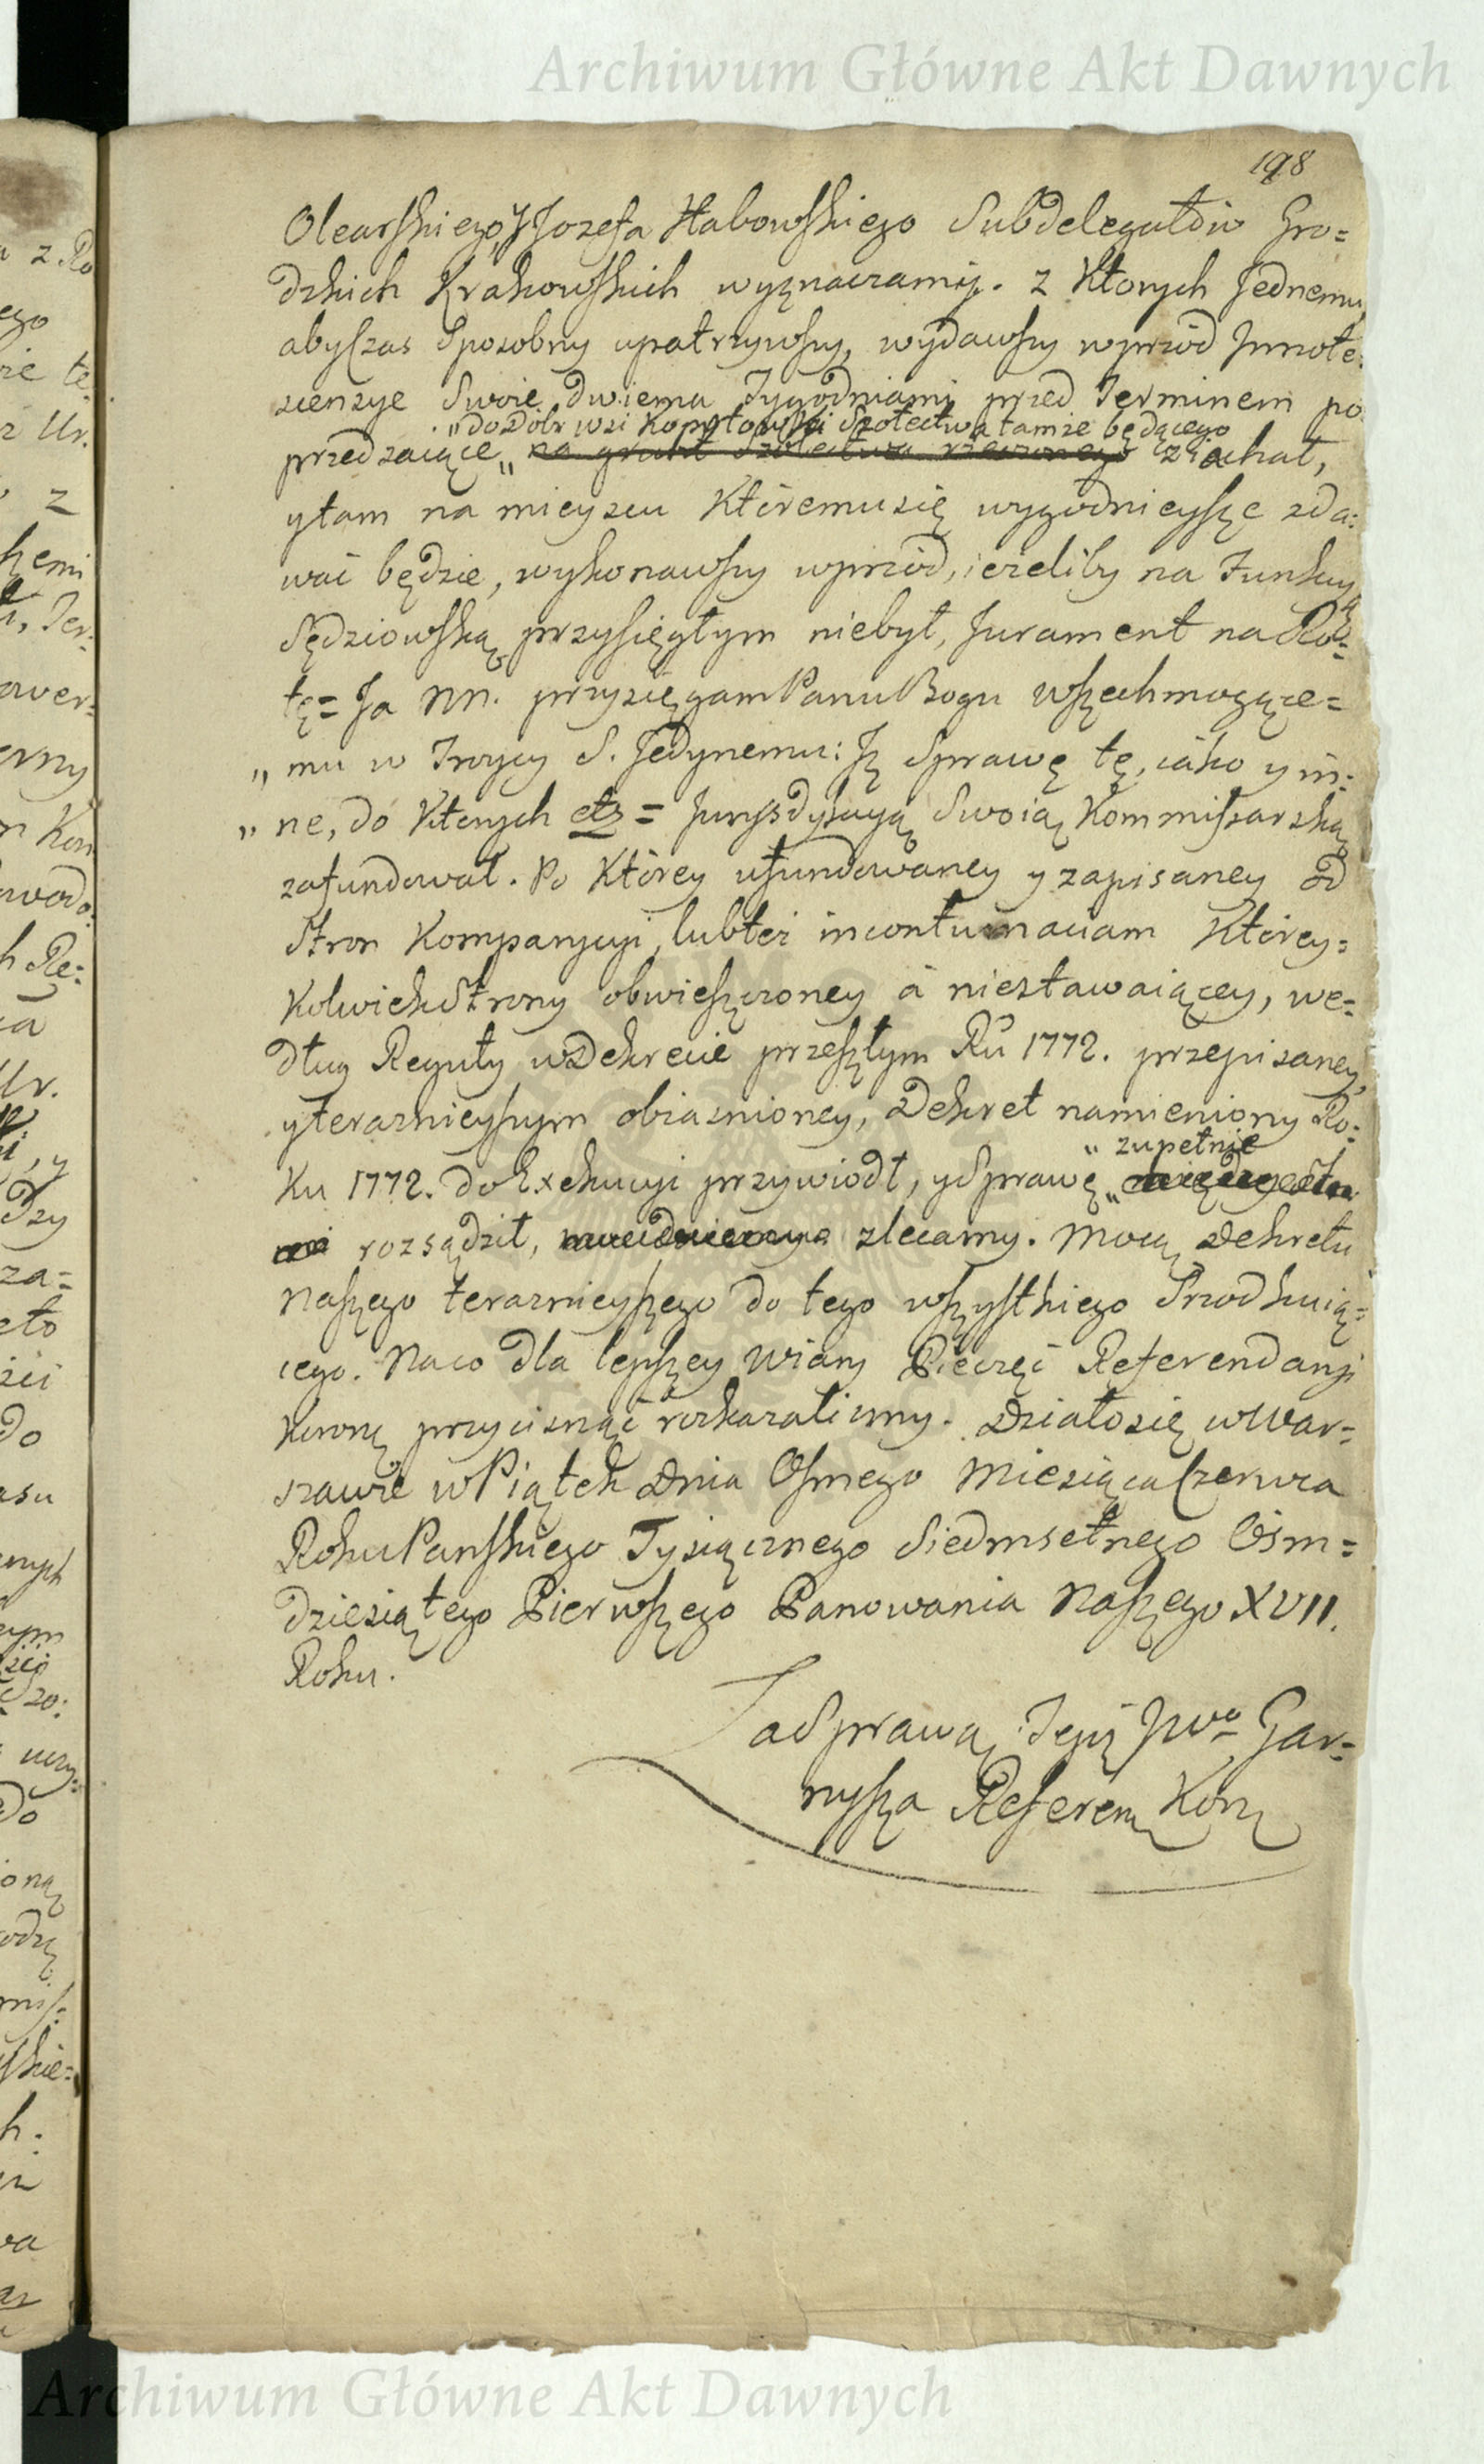 Archiwum Główne Akt Dawnych
198
Olearskiego, y Jozefa Habowskiego Subdelegatów Gro=
dzkich Krakowskich wyznaczamy. z Ktorych Jednemu,
aby Czas Sposobny upatrzywszy, wydawszy wprzód Innote:
scencye Swoie dwiema Tygodniami przed Terminem po:
„do Dóbr wsi Kopytowki Szołectwa tamże będącego
przedzaiące „ na grunt Szołectwa rzeczonego ziachał,
y tam na mieyscu Któremu się wygodnieysze zda:
wać będzie, wykonawszy wprzód, ieżeliby na Funkcyą
Sędziowską przysięgłym niebył, Jurament na Ro:
tę= Ja NN. przysięgam Panu Bogu wszechmogące=
„ mu w Troycy S. Jedynemu: Iż Sprawę tę, iáko y in:
„ ne, do Ktorych etz = Jurysdykcyą Swoią Kommissarską
zafundował. Po Którey ufundowaney y zapisaney od
Stron Komparycyi, lub też in contumaciam Którey=
kolwiek Strony obwieszczoney á niestawaiącey, we=
dług Reguły w Dekrecie przeszłym Ru 1772. przepisaney,
y terazniejszym obiasnioney, Dekret namieniony Ro:
„ zupełnie
ku 1772. do Exekucyi przywiódł, y Sprawę „
rozsądził, zlecamy. Mocą Dekretu
Naszego terazniejszego do tego wszystkiego Przodkuią=
cego. Na co dla lepszey Wiary Pieczęć Referendaryi
Koronney przycisnąć rozkazalismy. Działo się w War=
szawie w Piątek Dnia Osmego Miesiąca Czerwca
Roku Panskiego Tysiącznego Siedmsetnego Osm=
dziesiątego Pierwszego Panowania Naszego XVII.
Roku.
Za Sprawą Jego JWo Gar=
nysza Referen Kor
Archiwum Główne Akt Dawnych